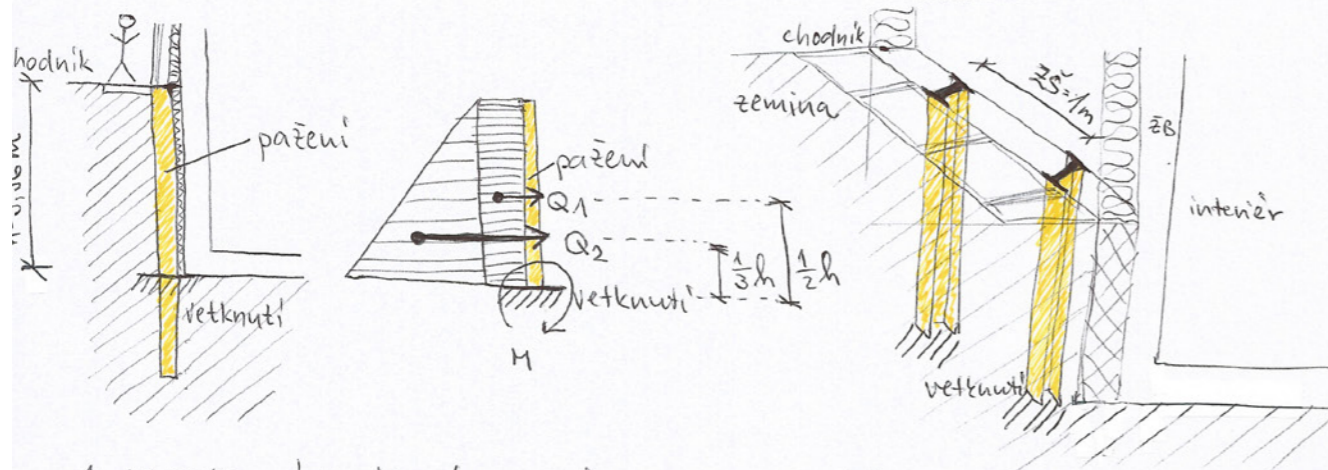 chodník
pažení
vetknutí
pažení
Q1
Q2
1/3 h
1/2 h
vetknutí
M
chodník
zemina
ZŠ=1m
ŽB
interiér
vetknutí